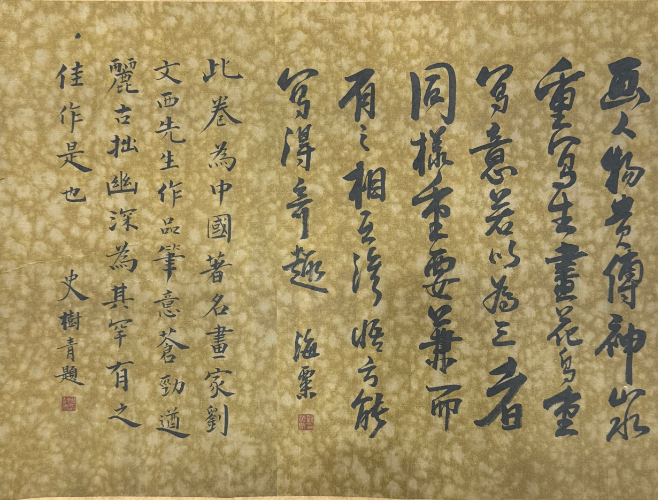 画人物贵傳神山水
重写生畫花鸟重
写意若以為三者
同樣重要兼而
有之相互渗悟方能
写得奇趣
海粟
此卷為中國著名畫家劉
文西先生作品筆意蒼勁遒
麗古拙幽深為其罕有之
佳作是也
史樹青題